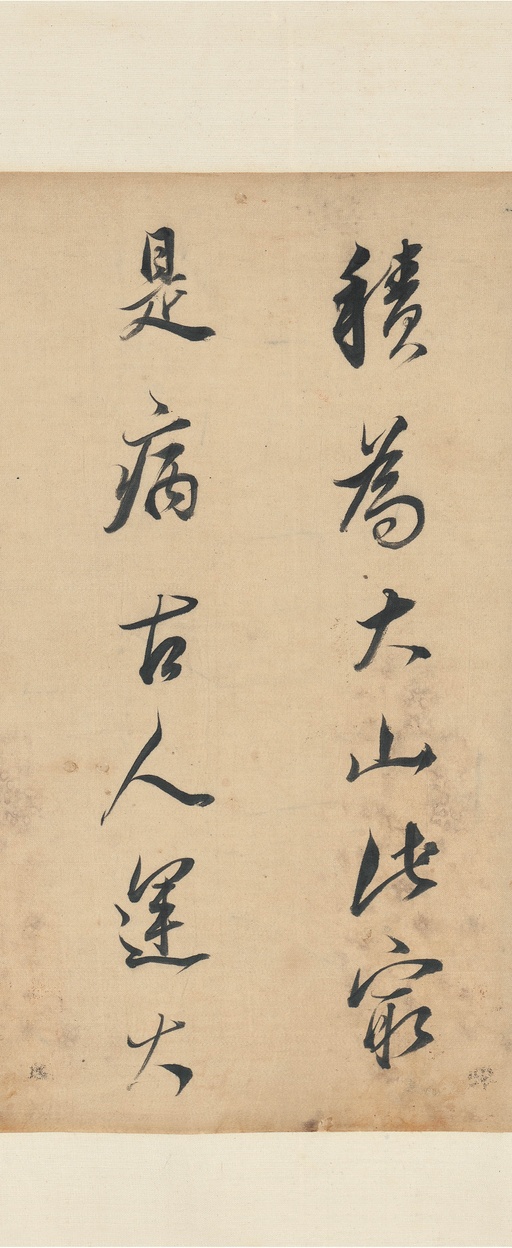 積為大山此最
是病古人運大